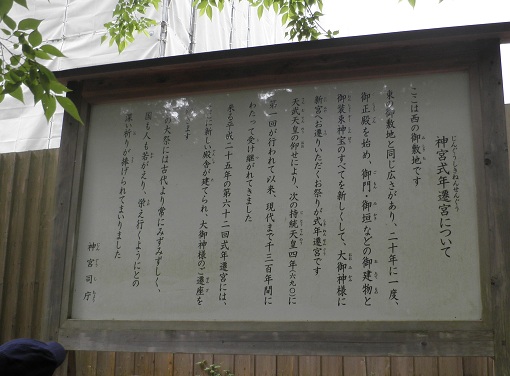 神宮式年遷宮について
ここは西の御敷地です
東の御敷地と同じ広さがあり、二十年に一度、
御正殿を始め、御門・御垣などの御建物と
御装束神宝のすべてを新しくして、大御神様に
新宮へお遷りいただくお祭りが式年遷宮です
天武天皇の仰せにより、次の持統天皇四年(六九〇)に
第一回が行われて以来、現代まで千三百年間に
わたって受け継がれてきました
来る平成二十五年の第六十二回式年遷宮には、
に新しい殿舎が建てられ、大御神様のご遷座を
ます
の大祭には古代より常にみずみずしく、
国も人も若がえり、栄え行くようにとの
深い祈りが捧げられてまいりました
神宮司庁